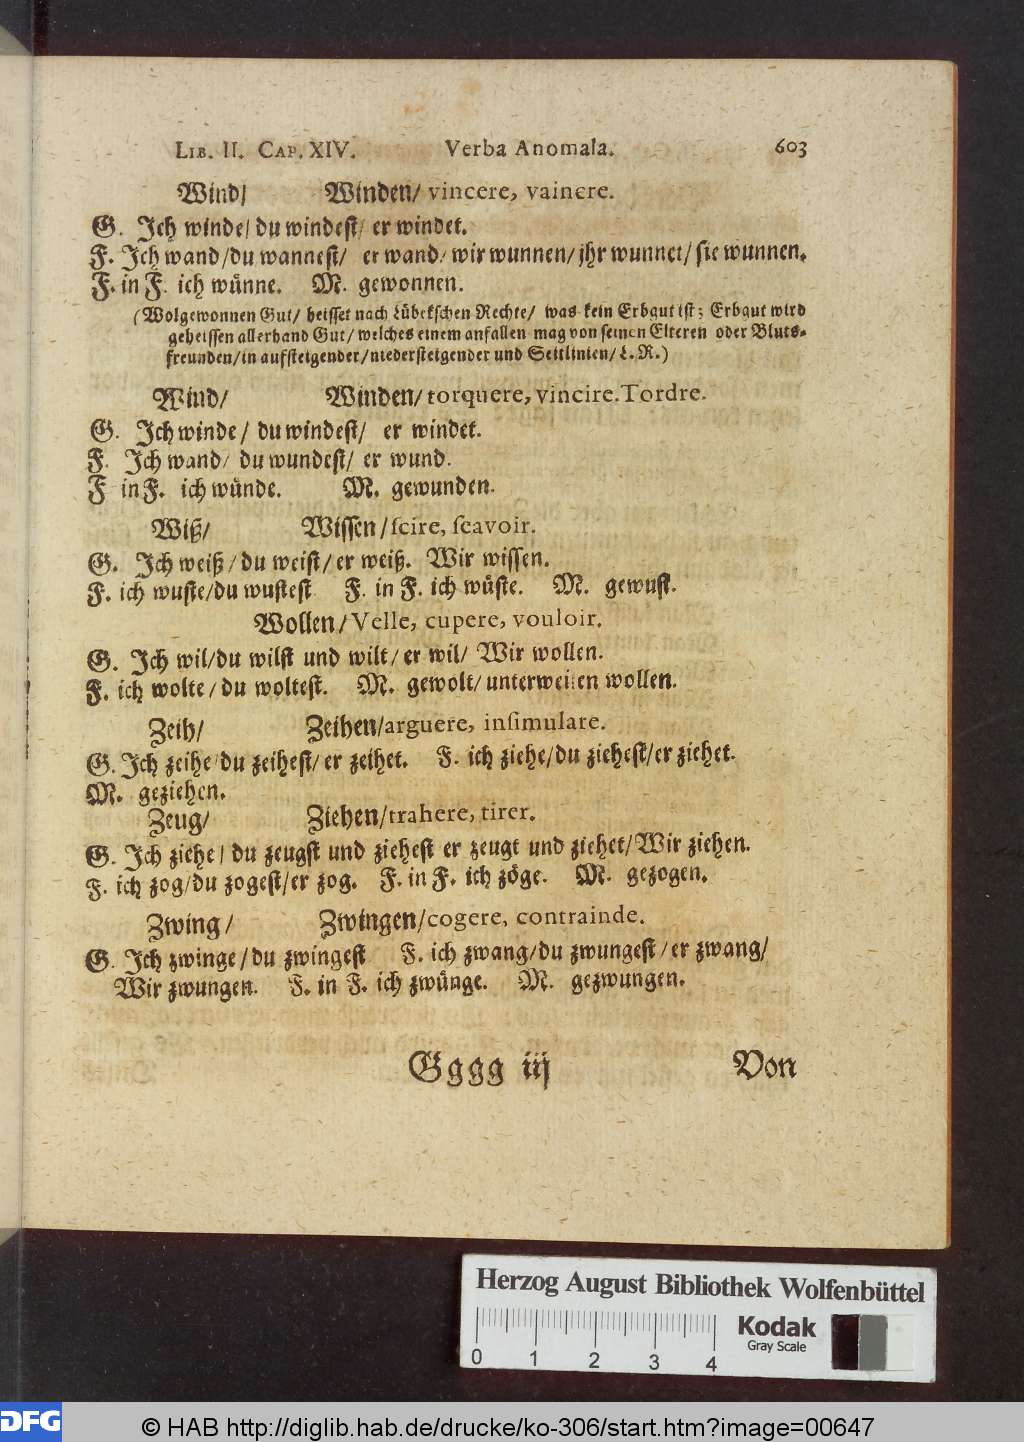 LIB. II. CAP. XIV. Verba Anomala. 603
Wind/ Winden/ vincere, vainere.
G. Ich winde/ du windest/ er windet.
F. Ich wand/du wannest/ er wand/ wir wunnen/ jhr wunnet/ sie wunnen.
F. in F. ich wünne. M. gewonnen.
(Wolgewonnen Gut/ heisset nach Lübekschen Rechte/ was kein Erbgut ist; Erbgut wird
geheissen allerhand Gut/ welches einem anfallen mag von seinen Elteren oder Bluts-
freunden/in aufsteigender/niedersteigender und Seitlinien/ L. R.)
Wind/ Winden/ torquere, vincire. Tordre.
G. Ich winde/ du windest/ er windet.
F. Ich wand/ du wundest/ er wund.
F in F. ich wünde. M. gewunden.
Wiß/ Wissen/ scire, scavoir.
G. Ich weiß/ du weist/ er weiß. Wir wissen.
F. ich wuste/du wustest F. in F. ich wüste. M. gewust.
Wollen/ Velle, cupere, vouloir.
G. Ich wil/du wilst und wilt/ er wil/ Wir wollen.
F. ich wolte/ du woltest. M. gewolt/ unterweilen wollen.
Zeih/ Zeihen/arguere, insimulare.
G. Ich zeihe/du zeihest/ er zeihet. F. ich ziehe/du ziehest/er ziehet.
M. geziehen.
Zeug/ Ziehen/trahere, tirer.
G. Ich ziehe/ du zeugst und ziehest er zeugt und ziehet/Wir ziehen.
F. ich zog/du zogest/er zog. F. in F. ich zöge. M. gezogen.
Zwing/ Zwingen/cogere, contrainde.
G. Ich zwinge/du zwingest F. ich zwang/du zwungest/er zwang/
Wir zwungen. F. in F. ich zwünge. M. gezwungen.
Gggg iij Von
Herzog August Bibliothek Wolfenbüttel
0 1 2 3 4
Kodak
Gray Scale
DFG © HAB http://diglib.hab.de/drucke/ko-306/start.htm?image=00647